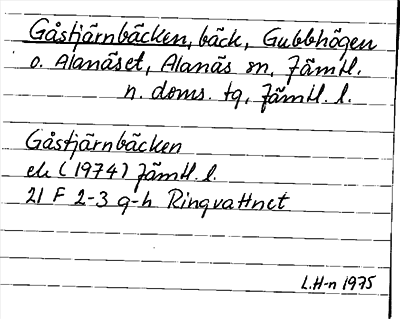 Gåstjärnbäcken, bäck, Gubbhögen
o. Alanäset, Alanäs sn, Jämtl.
n. doms. tg, Jämtl. l.
Gåstjärnbäcken
ek (1974) Jämtl. l.
21 F 2-3 g-h Ringvattnet
L.H-n 1975